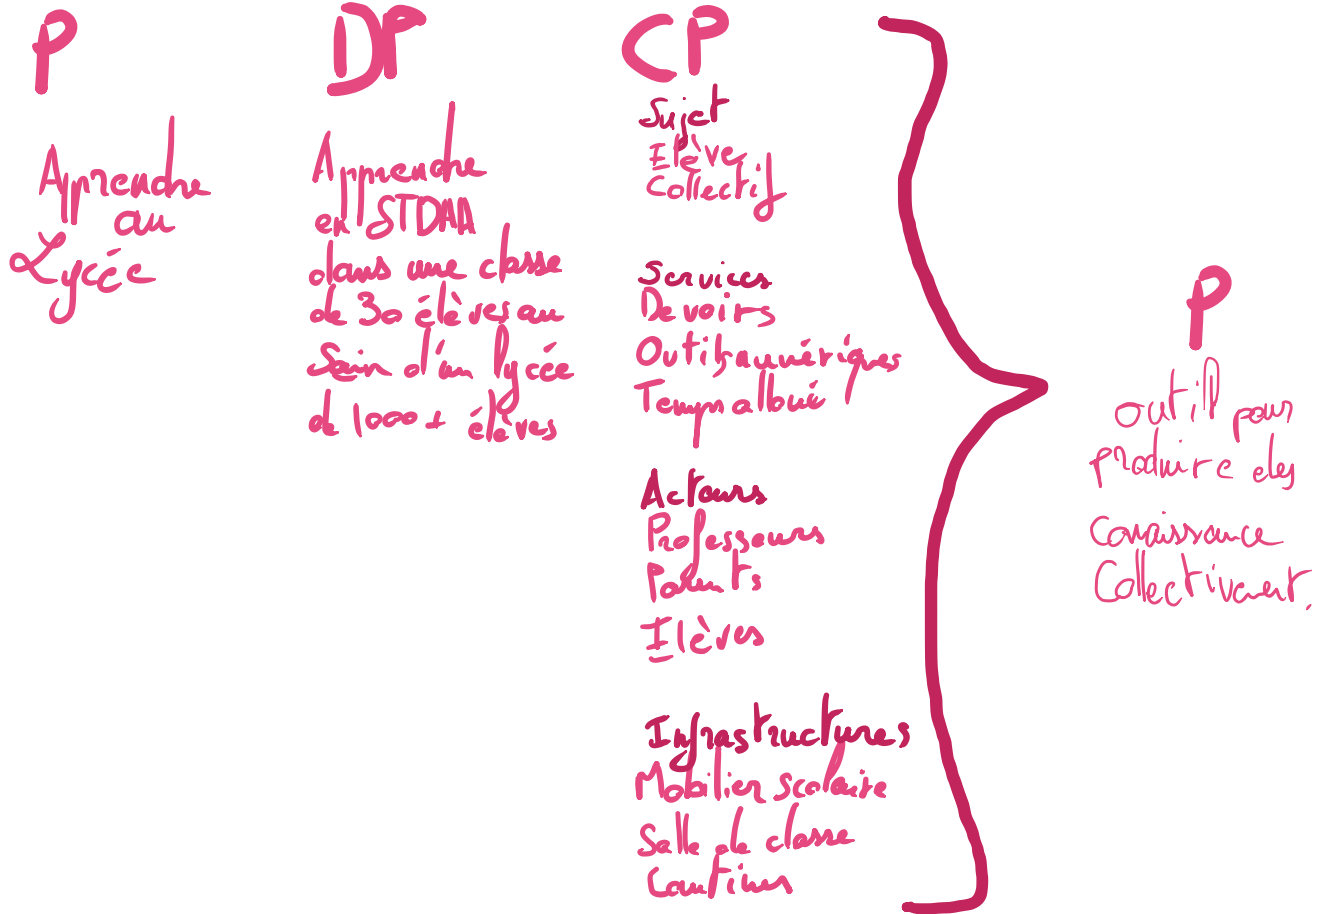 P
Apprendre
au
Lycée
DP
Apprendre
en STDAA
dans une classe
de 30 élèves au
sein d'un lycée
de 1000+ élèves
CP
Sujet
Elève
Collectif
Services
Devoirs
Outils numériques
Temps alloué
Acteurs
Professeurs
Parents
Elèves
Infrastructures
Mobilier scolaire
Salle de classe
Cantines
P
outil pour
produire des
Connaissance
Collectivement.